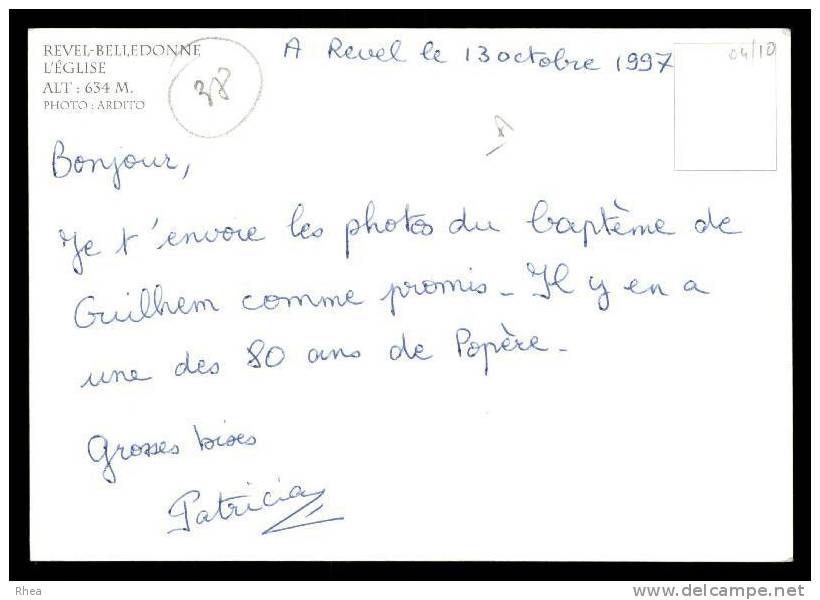 REVEL-BELLEDONNE
L'ÉGLISE
ALT : 634 M.
PHOTO : ARDITO
38
A Revel le 13 octobre 1997
04/10
Bonjour,
Je t'envoie les photos du baptème de
Guilhem comme promis - Il y en a
une des 80 ans de Popère -
Grosses bises
Patricia
Rhea
www.delcampe.net